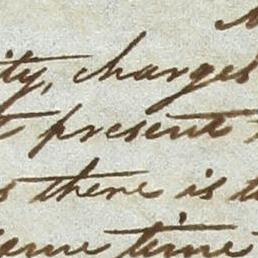 ity, charges
present
there is
time